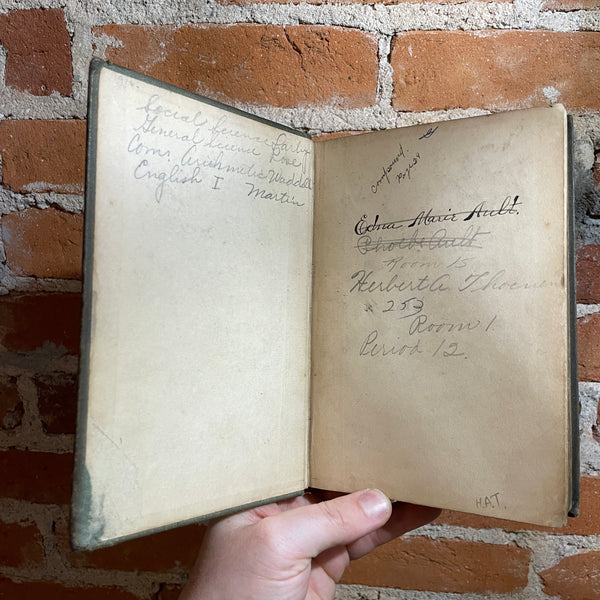 Social Science Farley
General Science Rose
Com. Arithmetic Waddell
English I Martin
Compound.
Page 24
Edna Marie Ault.
Phoebe Ault
Room 15
Herbert A. Thoenen
253
Room 1.
Period 12.
H.A.T.